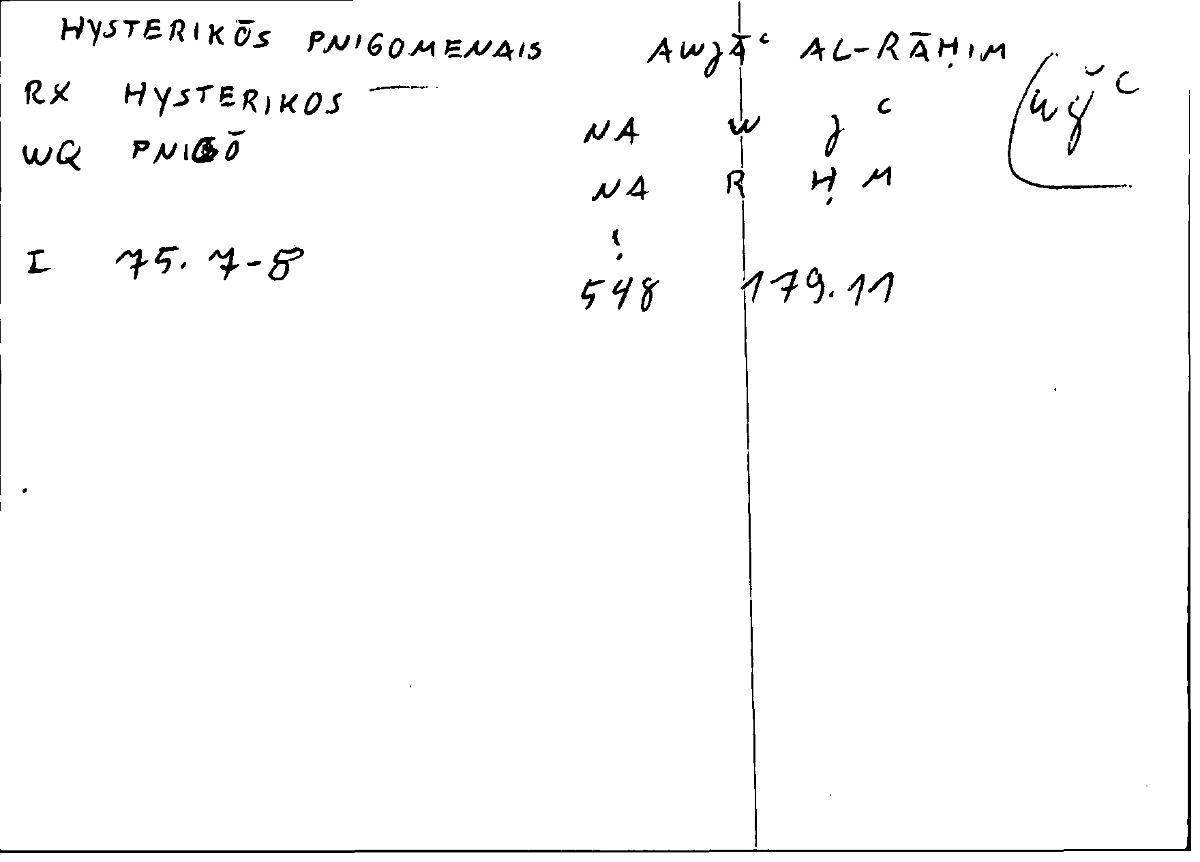 HYSTERIKŌS PNIGOMENAIS AWJĀʿ AL-RĀḤIM
RX HYSTERIKOS —
NA W J ʿ
wǧʿ
WQ PNIGŌ
NA R Ḥ M
!
I 75. 7-8
548 179.11